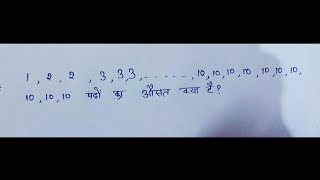 1, 2, 2, 3, 3, 3, ......, 10, 10, 10, 10, 10, 10, 10,
10, 10, 10 पदों का औसत क्या है?